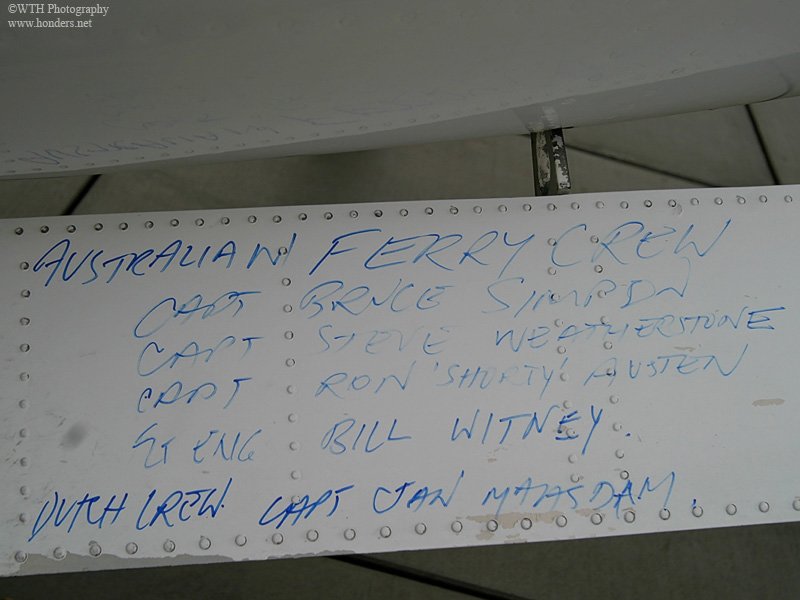 ©WTH Photography
www.honders.net
AUSTRALIAN FERRY CREW
CAPT BRUCE SIMPSON
CAPT STEVE WEATHERSTONE
CAPT RON 'SHORTY' AUSTEN
ENG BILL WITNEY.
DUTCH CREW. CAPT JAN MAASDAM.